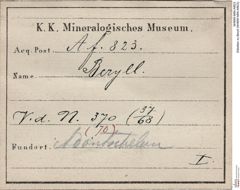 K. K. Mineralogisches Museum.
Acq. Post. A.f. 823.
Name. Beryll.
V. d. N. 370 (37/68)
(70)
Fundort.
I.